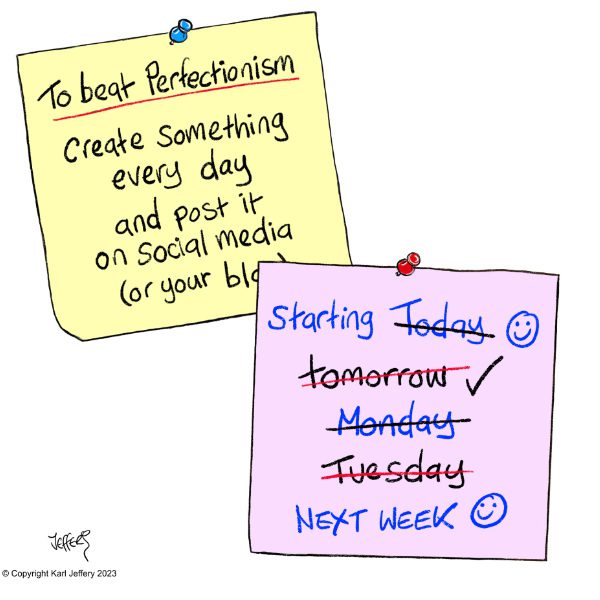 To beat Perfectionism
Create something
every day
and post it
on social media
(or your
Starting Today
tomorrow ✓
Monday
Tuesday
NEXT WEEK
Jeffery
© Copyright Karl Jeffery 2023